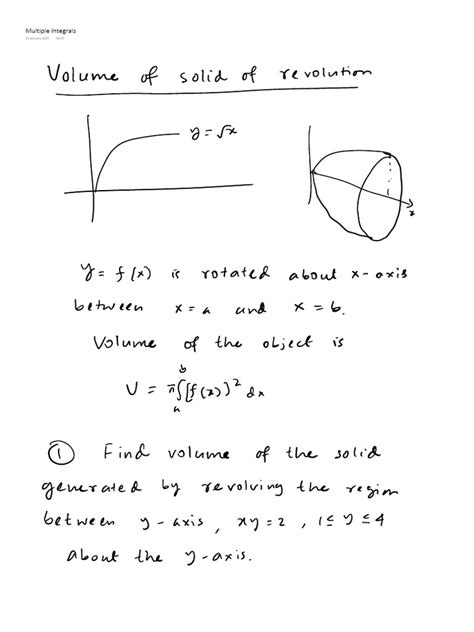 Multiple Integrals
Volume of solid of revolution
y = √x
x
y = f(x) is rotated about x-axis
between x = a and x = b.
Volume of the object is
V = π∫ₐᵇ[f(x)]² dx
① Find volume of the solid
generated by revolving the region
between y-axis, xy = 2, 1 ≤ y ≤ 4
about the y-axis.